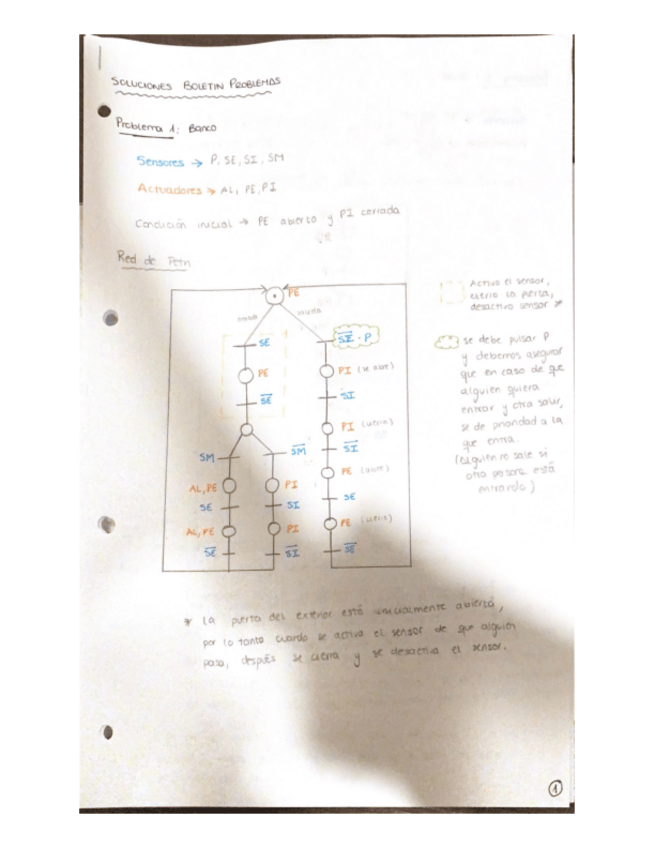 SOLUCIONES BOLETIN PROBLEMAS
Problema 1: Banco
Sensores → P, SE, SI, SM
Actuadores → AL, PE, PI
Condición inicial → PE abierta y PI cerrada
Red de Petri
PE
entrada salida
SE
S̅I̅ · P
PE
PI (se abre)
S̅E̅
SI
PI (cierro)
SM
S̅M̅
S̅I̅
AL, PE
PI
PE (abre)
SE
SI
SE
AL, PE
PI
PE (cierro)
S̅E̅
S̅I̅
S̅E̅
Activo el sensor,
cierro la puerta,
desactivo sensor *
se debe pulsar P
y debemos asegurar
que en caso de que
alguien quiera
entrar y otra salir,
se de prioridad a la
que entra.
(alguien no sale si
otra persona está
entrando)
* La puerta del exterior está inicialmente abierta,
por lo tanto cuando se activa el sensor de que alguien
pasa, después se cierra y se desactiva el sensor.
1